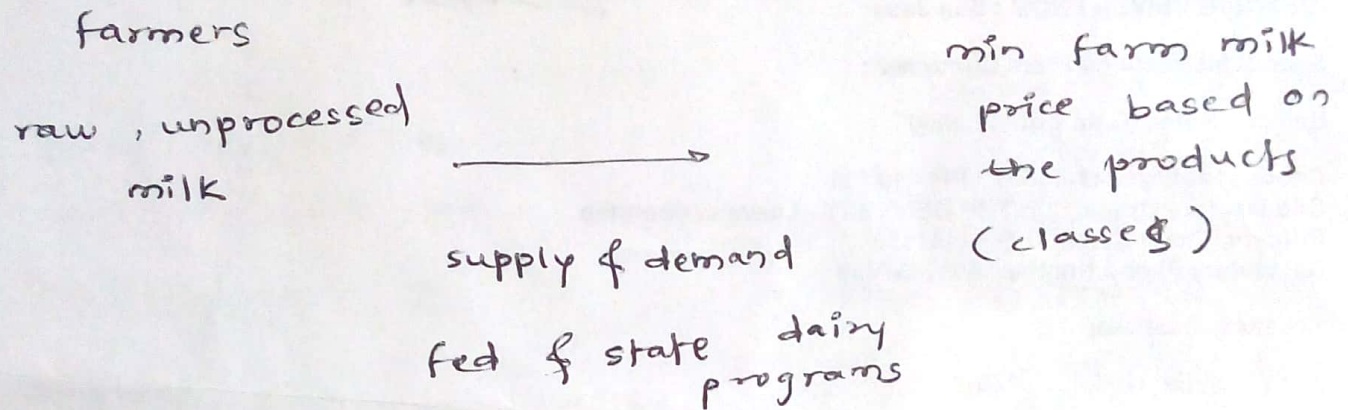 farmers
raw, unprocessed
milk
min farm milk
price based on
the products
(classes)
supply & demand
fed & state dairy
programs